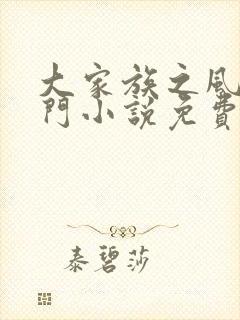 大家族之風
門小說免費
泰碧莎